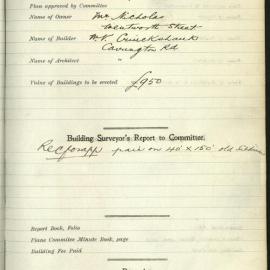 Plan approved by Committee
Name of Owner Mr Nicholas
Wentworth Street
Name of Builder W. Cruickshank
Cavington Rd
Name of Architect "
Value of Buildings to be erected £950
Building Surveyor's Report to Committee.
Rec for app pair on 40' x 150' old
Report Book, Folio
Plans Committee Minute Book, page
Building Fee Paid